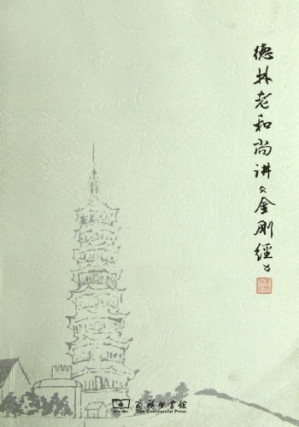 德林老和尚讲《金刚经》
商务印书馆
The Commercial Press